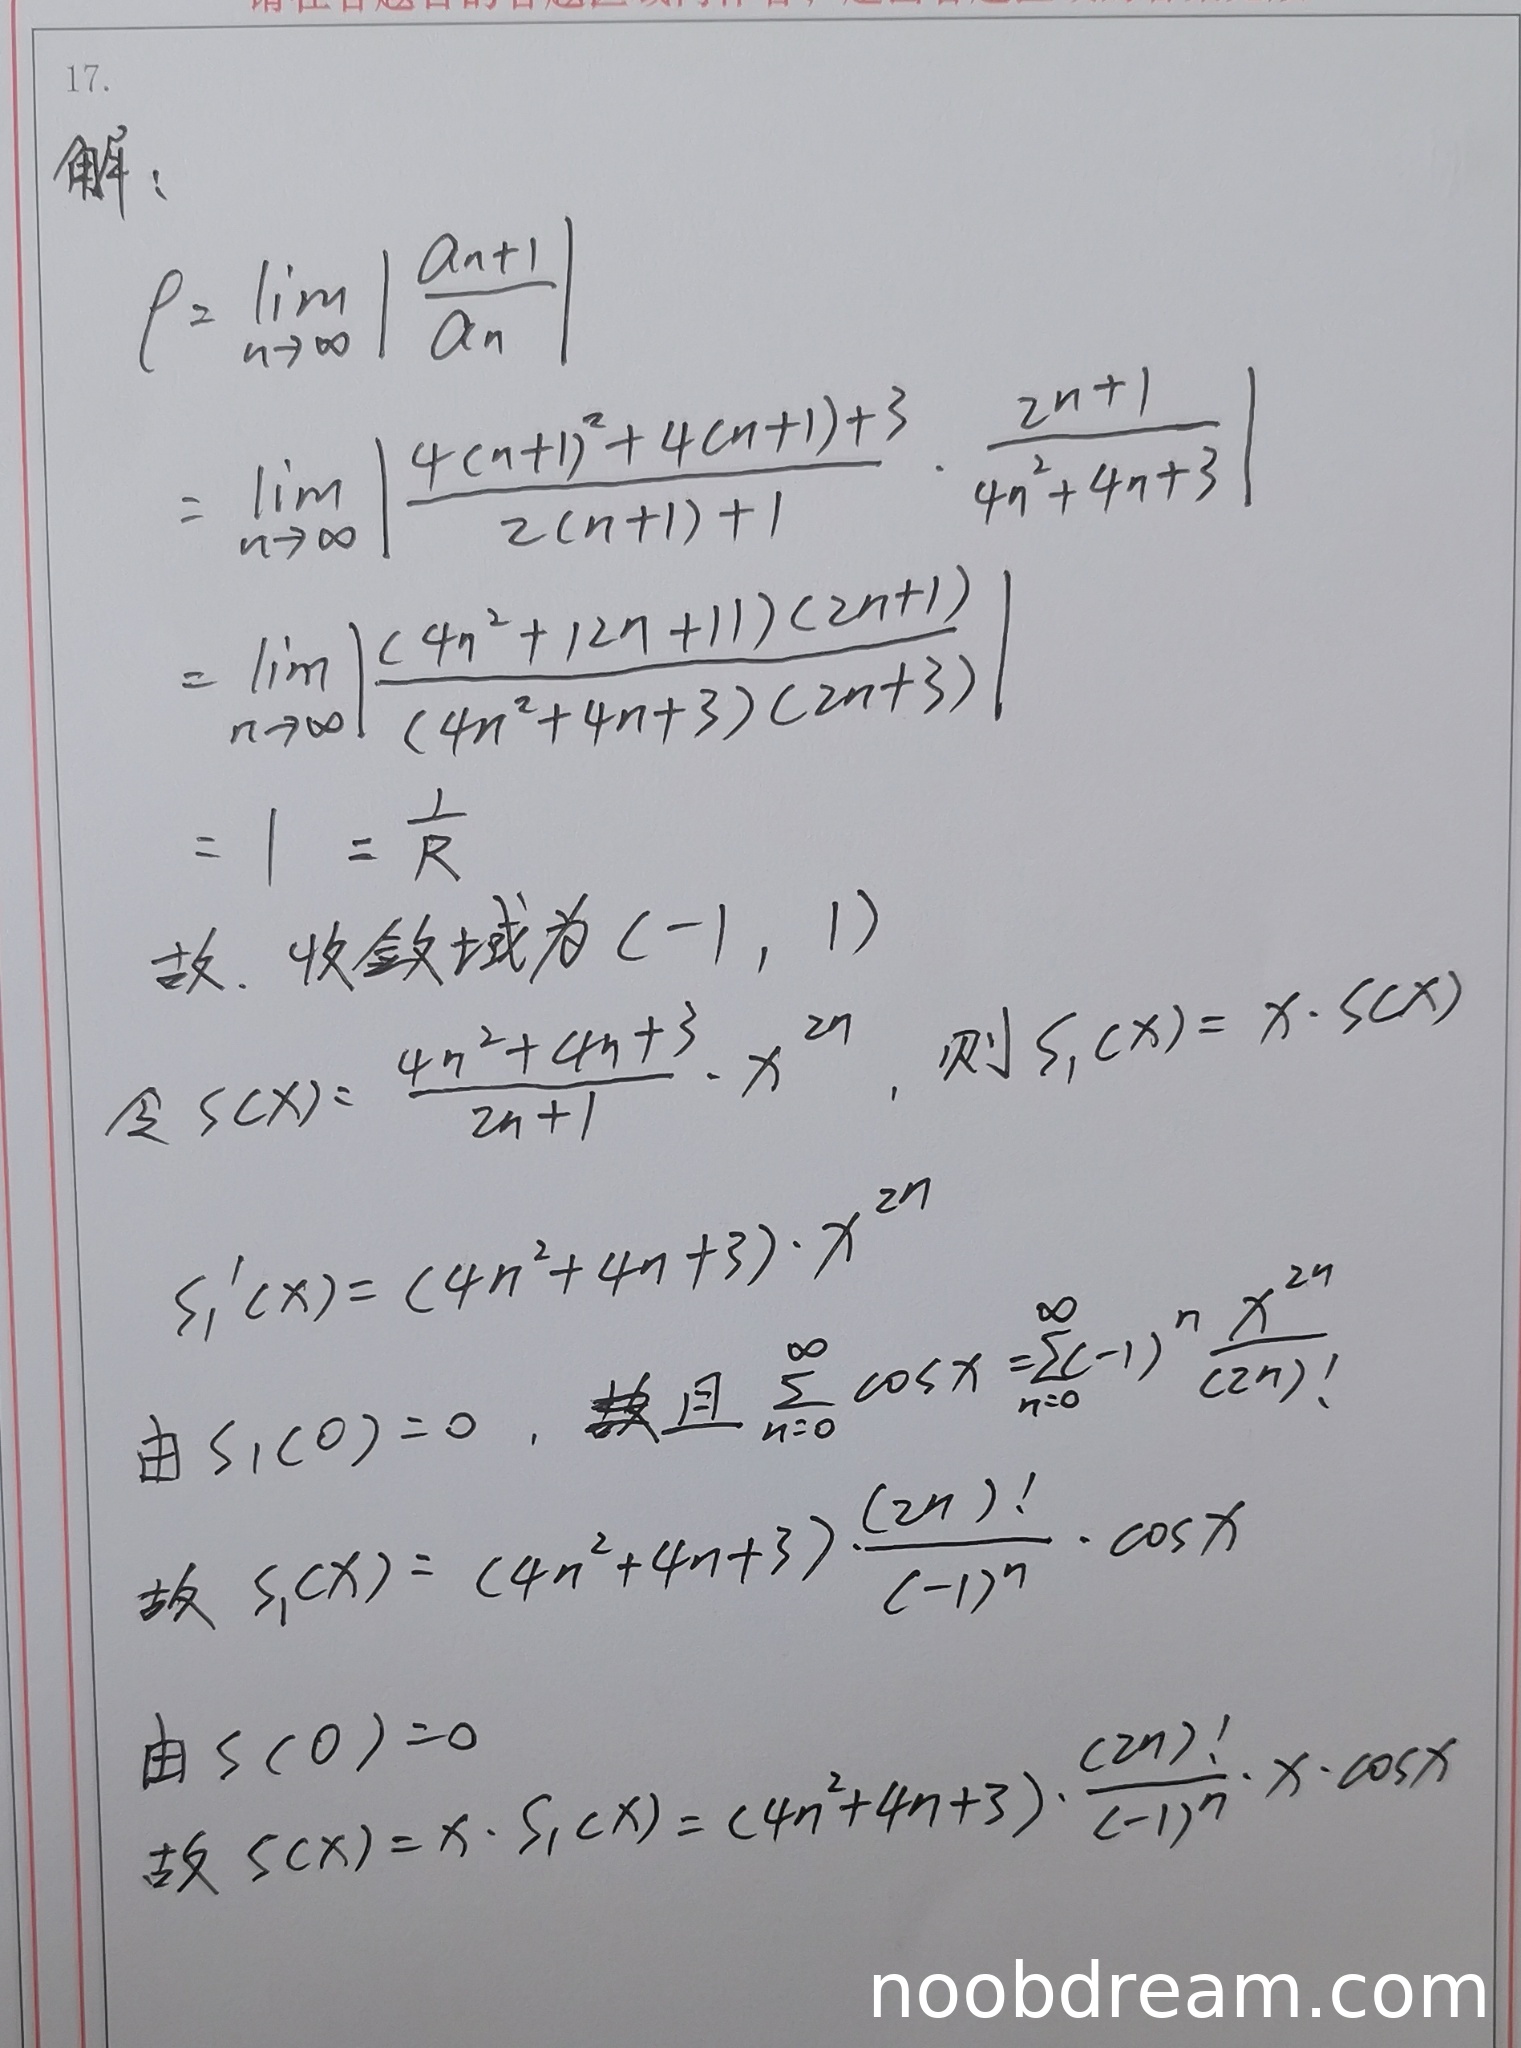 17.
解：
ρ = lim n→∞ | an+1 / an |
= lim n→∞ | (4(n+1)²+4(n+1)+3) / (2(n+1)+1) · (2n+1) / (4n²+4n+3) |
= lim n→∞ | (4n²+12n+11)(2n+1) / (4n²+4n+3)(2n+3) |
= 1 = 1/R
故. 收敛域为(-1, 1)
令S(X)= (4n²+4n+3)/(2n+1) · x^2n , 则S₁(X)= X·S(X)
S₁'(X)= (4n²+4n+3)·X^2n
由S₁(0)=0, 且 ∑ n=0 ∞ cosX = ∑ n=0 ∞ (-1)^n X^2n/(2n)!
故 S₁(X)= (4n²+4n+3)·(2n)!/(-1)^n · cosX
由S(0)=0
故 S(X)= X·S₁(X)= (4n²+4n+3)·(2n)!/(-1)^n · X·cosX
noobdream.com